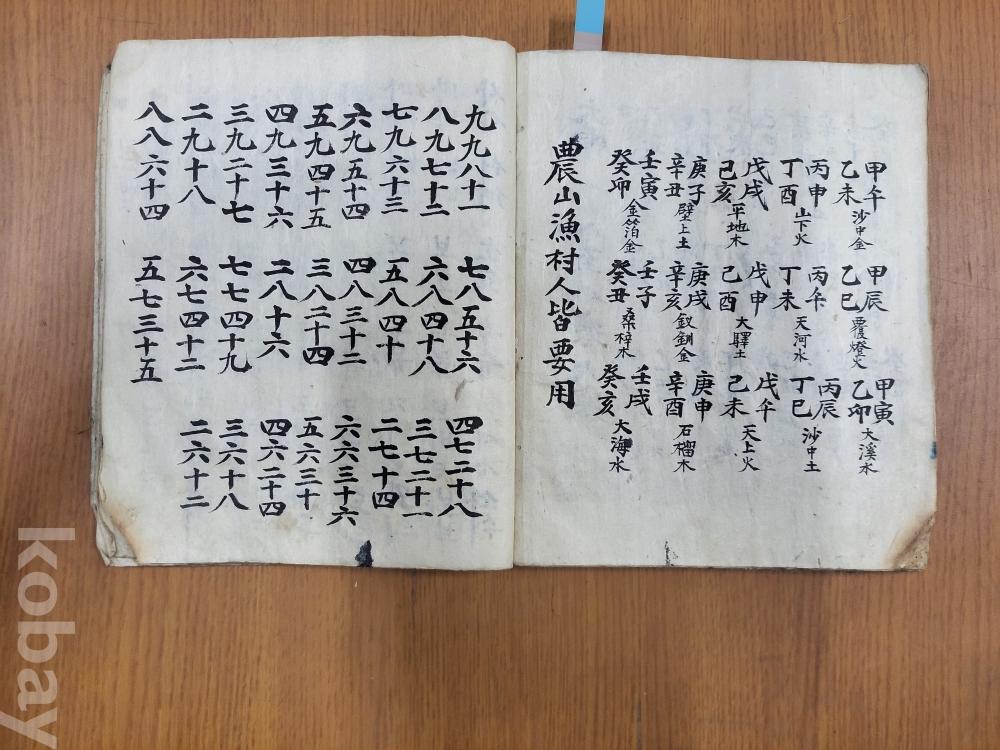 甲午
乙未 沙中金
丙申
丁酉 山下火
戊戌
己亥 平地木
庚子
辛丑 壁上土
壬寅
癸卯 金箔金
甲辰
乙巳 覆燈火
丙午
丁未 天河水
戊申
己酉 大驛土
庚戌
辛亥 釵釧金
壬子
癸丑 桑梓木
甲寅
乙卯 大溪水
丙辰
丁巳 沙中土
戊午
己未 天上火
庚申
辛酉 石榴木
壬戌
癸亥 大海水
農山漁村人皆要用
九九八十一
八九七十二
七九六十三
六九五十四
五九四十五
四九三十六
三九二十七
二九十八
八八六十四
七八五十六
六八四十八
五八四十
四八三十二
三八二十四
二八十六
七七四十九
六七四十二
五七三十五
四七二十八
三七二十一
二七十四
六六三十六
五六三十
四六二十四
三六十八
二六十二
kobay